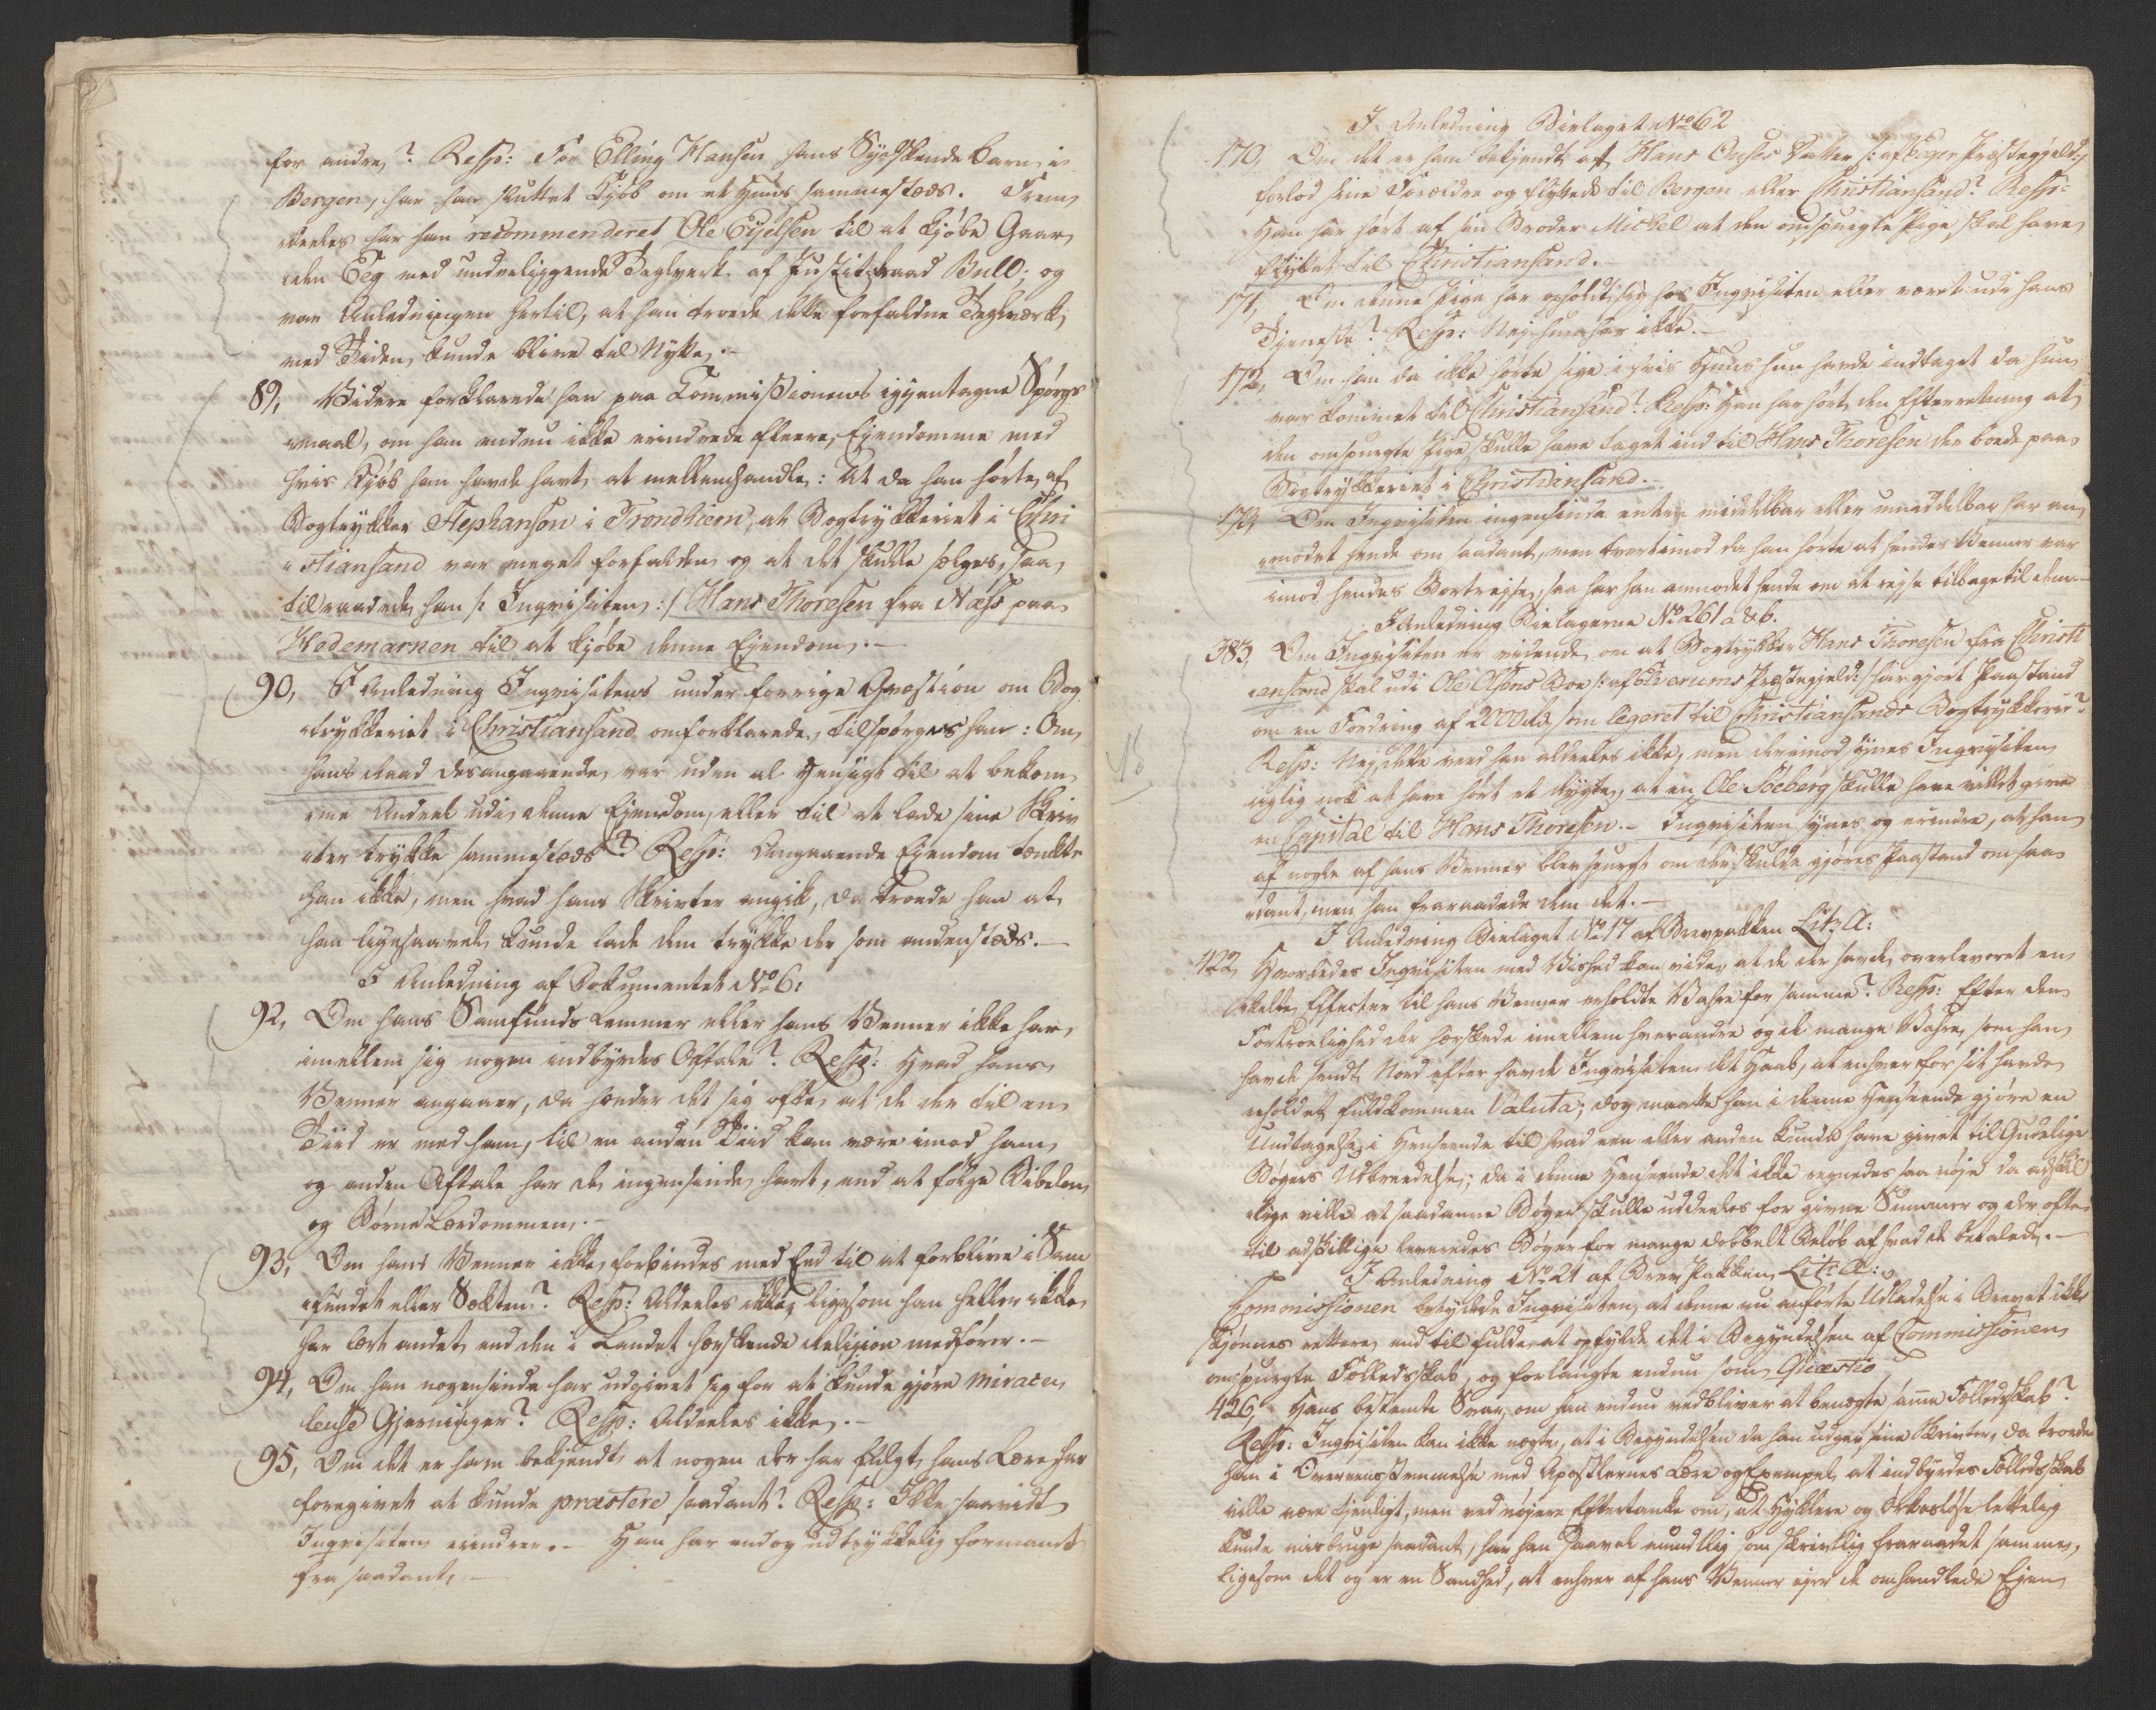 for andre? Resp: For Elling Hansen hans Syskende Barn i
Bergen, har han sluttet Kjøb om et Huus sammesteds. Frem
deeles har han recommenderet Ole Eyelsen til at kjøbe Gaar
den Eeg med underliggende Teglverk af Justitzraad Bull; og
var Anledningen hertil, at han troede dette forfaldne Teglværk,
med Tiden kunde blive til Nytte.-
89, Videre forklarede han paa Commissionens igjentagne Spørgs
maal, om han endnu ikke erindrede fleere Eiendomme med
hvis Kjøb han havde havt at mellemhandle: At da han hørte af
Bogtrykker Stephanson i Trondhiem, at Bogtrykkeriet i Chri
stiansand var meget forfalden og at det skulle sælges, saa
tilraadede han /: Inqvisiten :/ Hans Thoresen fra Næss paa
Hedemarnen til at kjøbe denne Eiendom.-
90, I Anledning Inqvisitens under forrige Qvæstion om Bog
trykkeriet i Christiansand omforklarede, tilspørges han: Om
hans Raad desangaaende var uden al Hensigt til at bekom
me Andeel udi denne Ejendom, eller til at lade sine Skriv
ter trykke sammesteds? Resp: Angaaende Eiendom tænkte
han ikke, men hvad hans Skrivter angik, da troede han at
han ligesaavel kunde lade dem trykke der som andensteds.-
I Anledning af Dokumentet No 6:
92, Om hans Samfunds Lemmer eller hans Venner ikke har
imellem sig nogen indbyrdes Aftale? Resp: Hvad hans
Venner angaaer, da hender det sig ofte, at de der til en
Tiid er med ham, til en anden Tiid kan være imod ham,
og anden Aftale har de ingensinde havt, end at følge Bibelen
og Børne Lærdommen.-
93, Om hans Venner ikke forbindes med Eed til at forblive i Sam
fundet eller Sekten? Resp: Aldeeles ikke, ligesom han heller ikke
har lært andet end den i Landet herskende Religion medfører.-
94, Om han nogensinde har udgivet sig for at kunde gjøre miracu
leuse Gjerninger? Resp: Aldeeles ikke.-
95, Om det er ham bekjendt, at nogen der har fulgt hans Lære har
foregivet at kunde præstere saadant? Resp: Ikke saavidt
Inqvisiten erindrer.- Han har endog udtrykkelig formanet
fra saadant.-
I Anledning Bielaget No 62
170, Om det er ham bekjendt at Hans Datter /: af Eger Præstegjeld :/
forlod sine Forældre og flyttede til Bergen eller Christiansand? Resp:
Han har hørt af sin Broder Michel at den omspurgte Pige skal have
flyttet til Christiansand.-
171, Om denne Pige har opholdt sig hos Inqvisiten eller været udi hans
Tjeneste? Resp: Nej hun har ikke.-
172, Om han da ikke hørte sige i hvis Huus hun havde indtaget da hun
var kommet til Christiansand? Resp: Han har hørt den Efterretning at
den omspurgte Pige skulle have taget ind til Hans Thoresen der boede paa
Bogtrykkeriet i Christiansand.-
Om Inqvisiten ingensinde enten middelbar eller umiddelbar har an
modet hende om saadant, men tvertimod da han hørte at hendes Venner var
imod hendes Bortrejse, saa har han anmodet hende om at rejse tilbage til dem.-
I Anledning Bielagerne No 261 a & b.
383, Om Inqvisiten er vidende om at Bogtrykker Hans Thoresen fra Christi
ansand skal udi Ole Olsens Boe /: af Elverums Præstegjeld :/ har gjort Paastand
om en Fordring af 2000 rd. som legeret til Christiansands Bogtrykkerie?
Resp: Nej, dette veed han aldeeles ikke, men derimod synes Inqvisiten
nok at have hørt et Rygte, at en Ole Soeberg skulle have villet give
en Capital til Hans Thoresen.- Inqvisiten synes og erindre, at han
af nogle af hans Venner blev spurgt om der skulde gjøres Paastand om saa
dant, men han fraraadede dem det.-
I Anledning Bielaget No 17 af Brevpakken Litr A:
422, Hvorledes Inqvisiten med Vished kan vide, at de der havde overleveret en
kelte Effecter til hans Venner erholdte Vahre for samme? Resp: Efter den
Fortroelighed der herskede imellem hverandre og de mange Vahre, som han
havde sendt Nord efter havde Inqvisiten det Haab, at enhver for sit havde
erholdet fuldkommen Valuta; dog maatte han i denne Henseende gjøre en
Undtagelse i Henseende til hvad een eller anden kunde have givet til Gudelige
Bøgers Udbreedelse; da i denne Henseende det ikke regnedes saa nøje da adskil
lige ville at saadanne Bøger skulle uddeeles for givne Summer og der ofte
til adskillige leveredes Bøger for mange dobbelt Beløb af hvad de betalede.-
I Anledning No 21 af Brev Pakken Litr A:
Commissionen betydede Inqvisiten, at denne nu anførte Udladelse i Brevet ikke
skjønnes rettere end til fulde at opfylde det i Begyndelsen af Commissionen
omspurgte Fælledsskab, og forlangte endnu som Qvæstio
426, Hans bestemte Svar, om han endnu vedbliver at benægte samme Fælledskab?
Resp: Inqvisiten kan ikke negte, at i Begyndelsen da han udgav sine Skrivter, da troede
han i Overeensstemmelse med Apostlernes Lære og Exempel, at indbyrdes Fælledsskab
ville være tienligt, men ved nøjere Eftertanke om, at Hyklere og Ørkesløse lettelig
kunde misbruge saadant, har han saavel mundtlig som skrivtlig fraraadet samme,
ligesom det og er en Sandhed, at enhver af hans Venner ejer de omhandlede Ejen